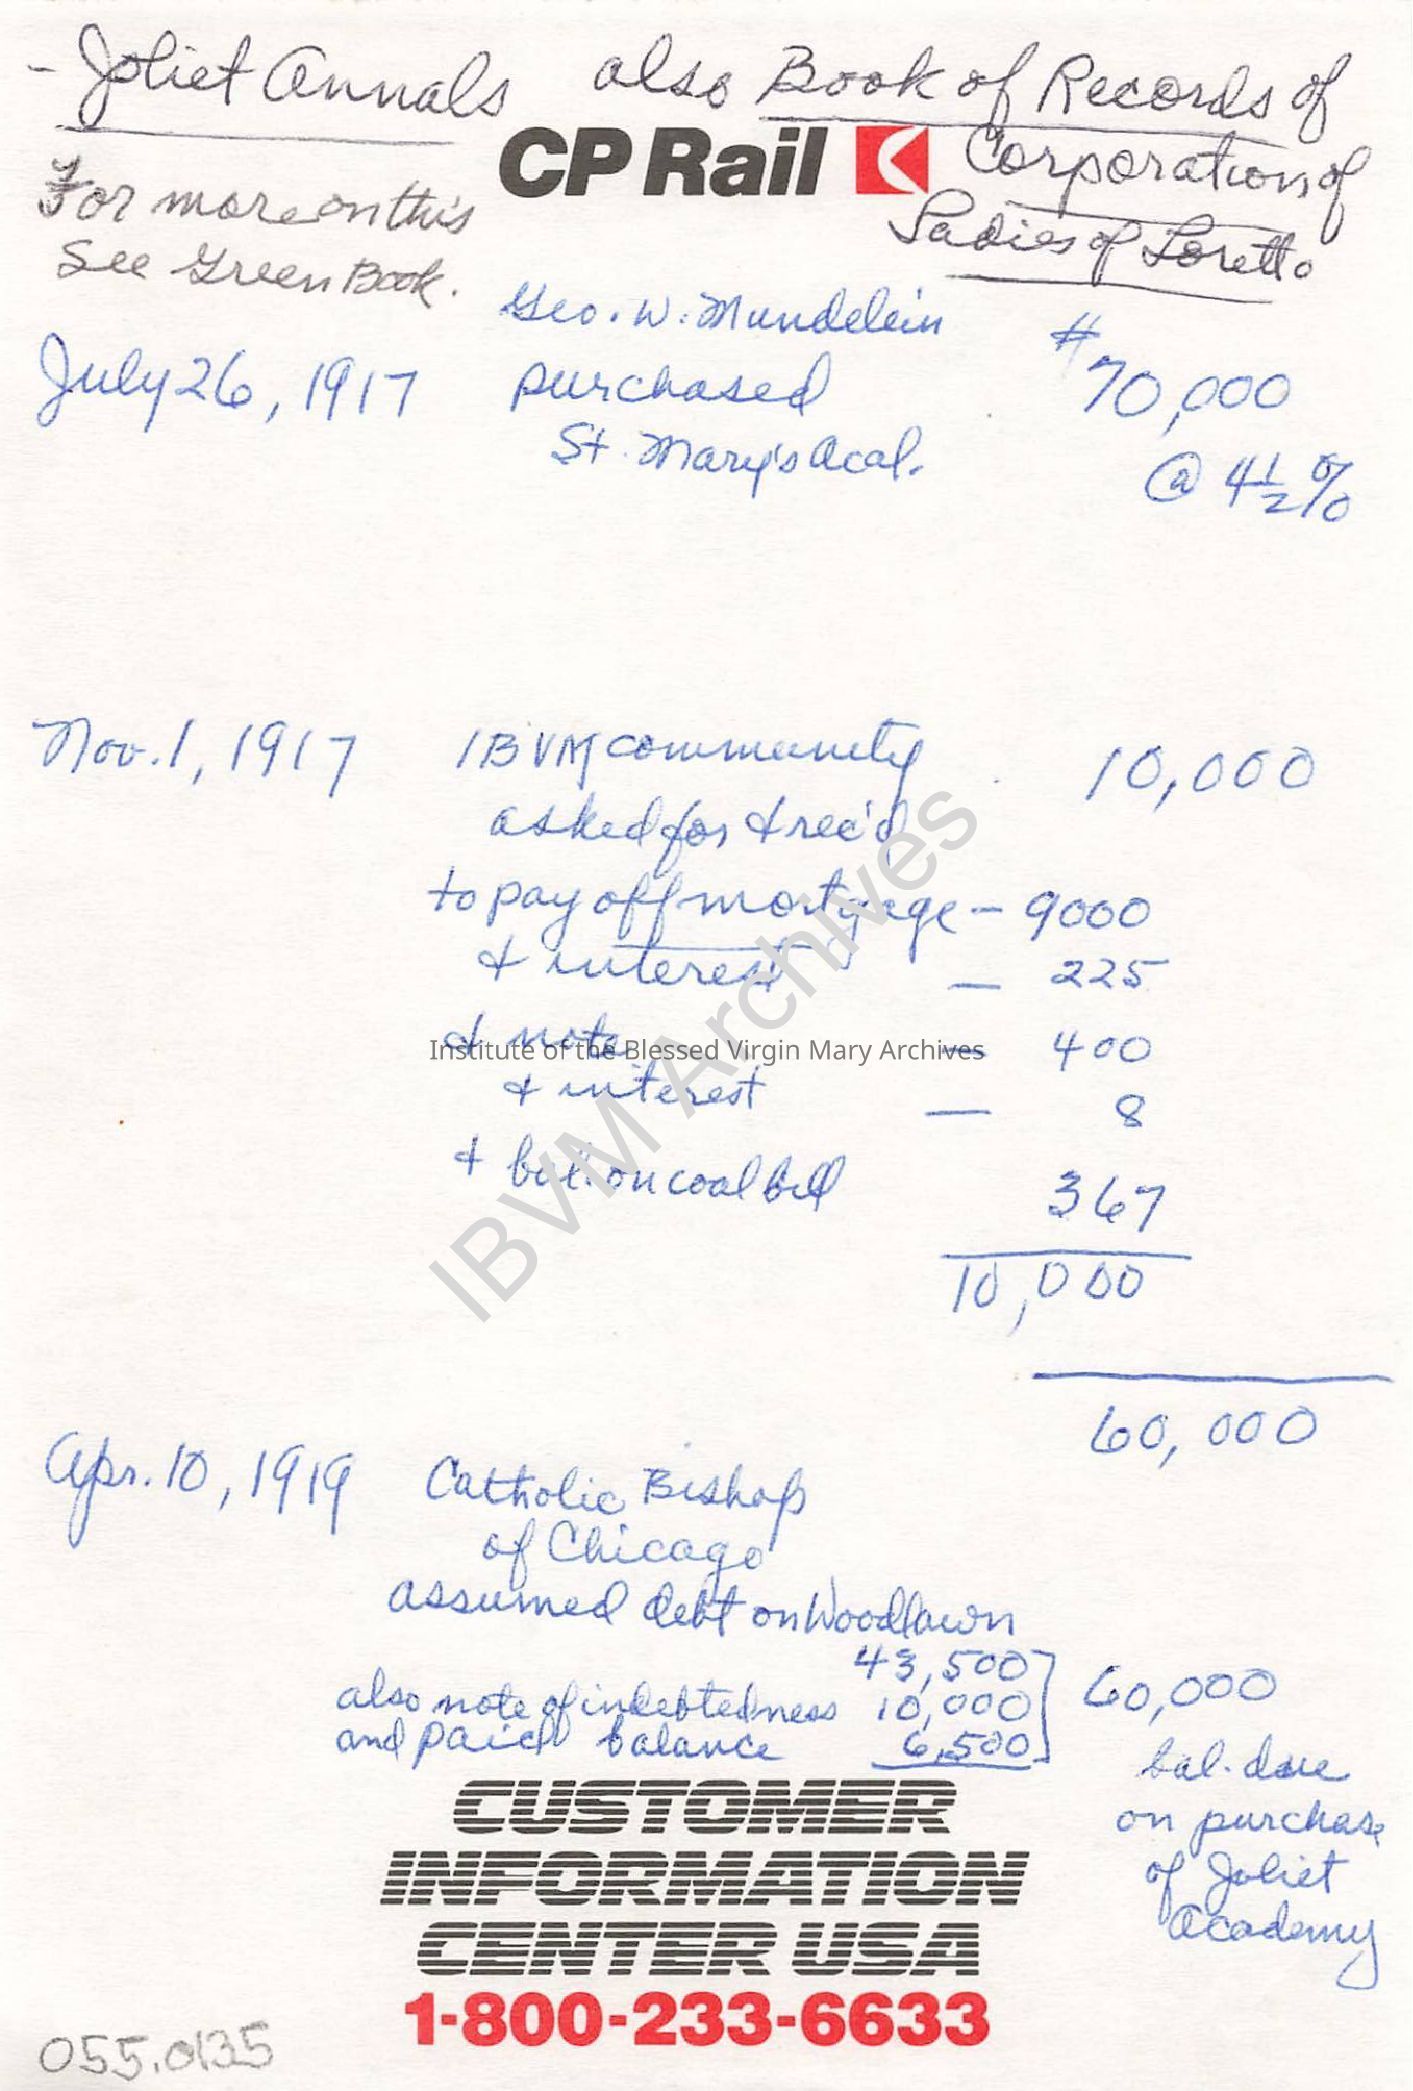 - Joliet Annals also Book of Records of
CP Rail Corporation of
Ladies of Loretto
For more on this
See Green Book.
Geo. W. Mundelein
July 26, 1917 purchased $70,000
St. Mary's Acad. @ 4½%
Nov. 1, 1917 IBVM community 10,000
asked for & rec'd
to pay off mortgage - 9000
& interest — 225
& note — 400
& interest — 8
& bal. on coal bill 367
10,000
60,000
Apr. 10, 1919 Catholic Bishop
of Chicago
assumed debt on Woodlawn
43,500
also note of indebtedness 10,000 60,000
and paid balance 6,500
bal. due
on purchase
of Joliet
Academy
CUSTOMER
INFORMATION
CENTER USA
1-800-233-6633
055.0135
IBVM Archives
Institute of the Blessed Virgin Mary Archives